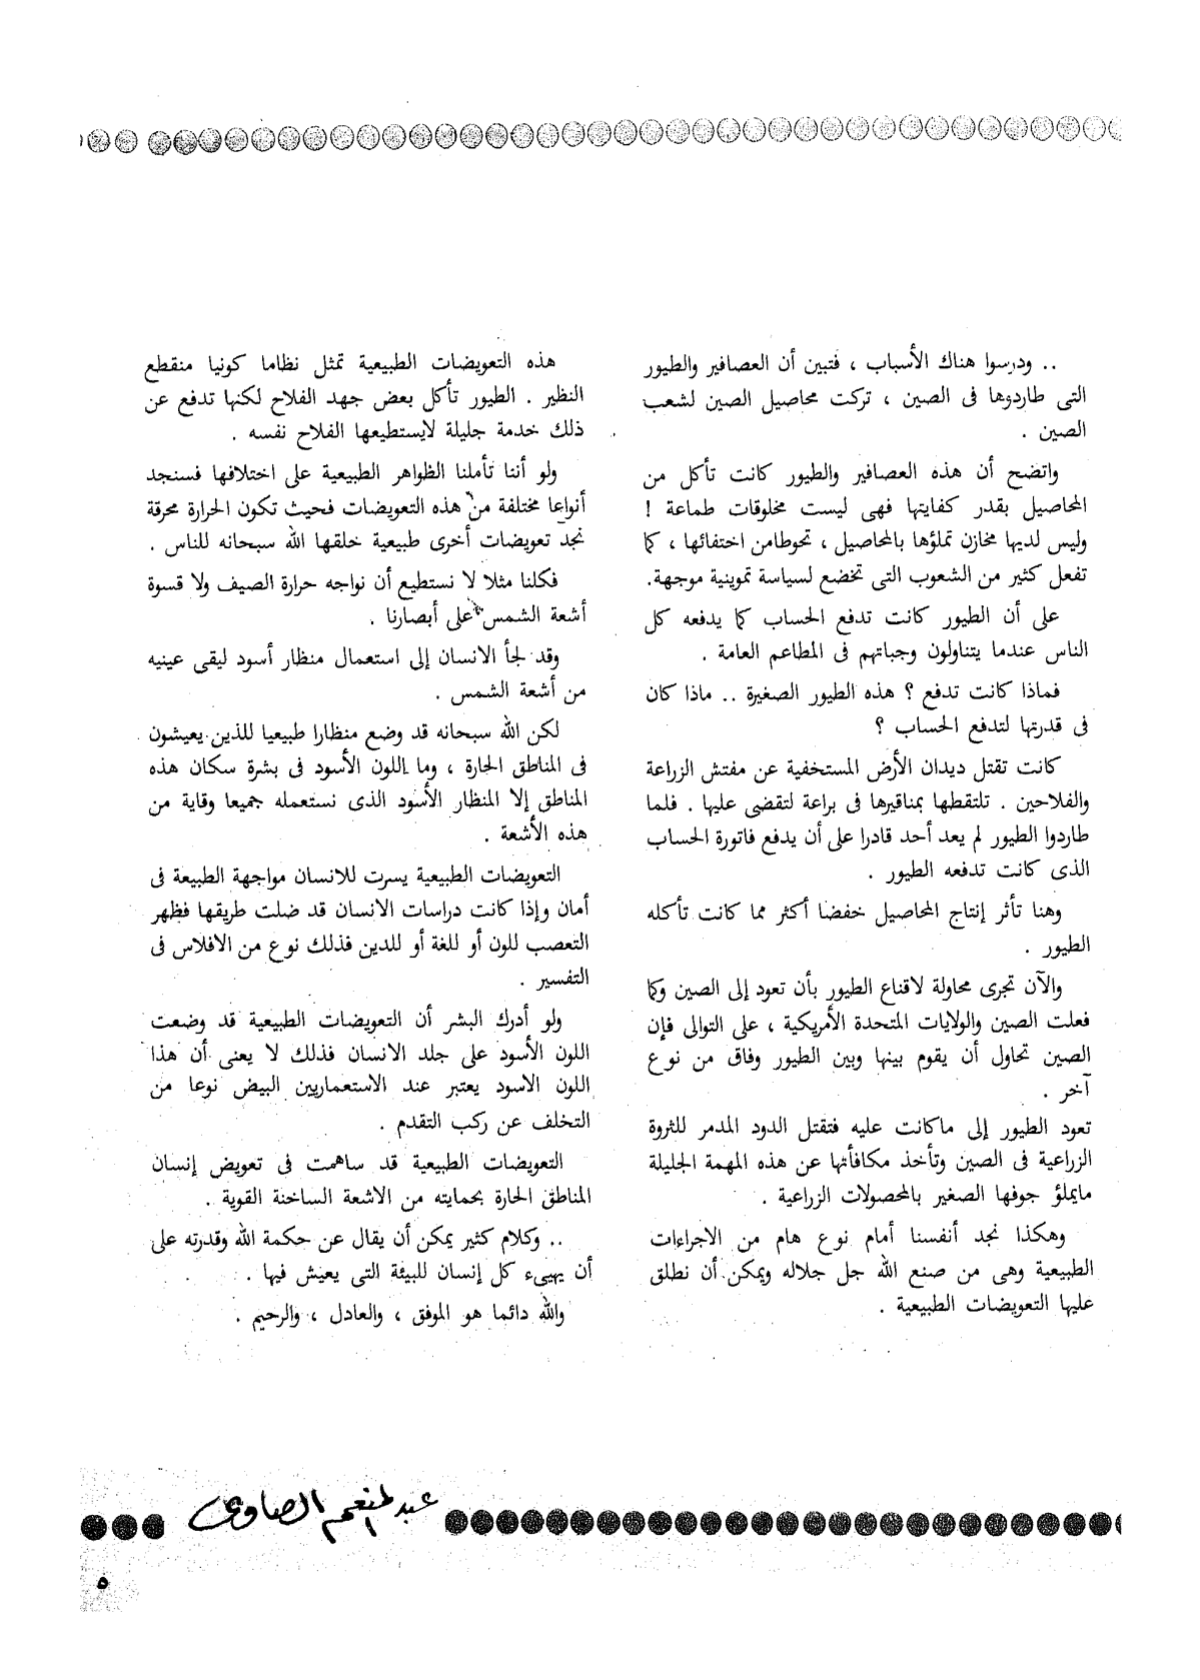 .. ودرسوا هناك الأسباب ، فتبين أن العصافير والطيور
التى طاردوها فى الصين ، تركت محاصيل الصين لشعب
الصين .
واتضح أن هذه العصافير والطيور كانت تأكل من
المحاصيل بقدر كفايتها فهى ليست مخلوقات طماعة !
وليس لديها مخازن تملؤها بالمحاصيل ، تحوطامن اختفائها ، كما
تفعل كثير من الشعوب التى تخضع لسياسة تموينية موجهة.
على أن الطيور كانت تدفع الحساب كما يدفعه كل
الناس عندما يتناولون وجباتهم فى المطاعم العامة .
فماذا كانت تدفع ؟ هذه الطيور الصغيرة .. ماذا كان
فى قدرتها لتدفع الحساب ؟
كانت تقتل ديدان الأرض المستخفية عن مفتش الزراعة
والفلاحين . تلتقطها بمناقيرها فى براعة لتقضى عليها . فلما
طاردوا الطيور لم يعد أحد قادرا على أن يدفع فاتورة الحساب
الذى كانت تدفعه الطيور .
وهنا تأثر إنتاج المحاصيل خفضا أكثر مما كانت تأكله
الطيور .
والآن تجرى محاولة لاقناع الطيور بأن تعود إلى الصين وكما
فعلت الصين والولايات المتحدة الأمريكية ، على التوالى فإن
الصين تحاول أن يقوم بينها وبين الطيور وفاق من نوع
آخر .
تعود الطيور إلى ماكانت عليه فتقتل الدود المدمر للثروة
الزراعية فى الصين وتأخذ مكافأتها عن هذه المهمة الجليلة
مايملؤ جوفها الصغير بالمحصولات الزراعية .
وهكذا نجد أنفسنا أمام نوع هام من الاجراءات
الطبيعية وهى من صنع الله جل جلاله ويمكن أن نطلق
عليها التعويضات الطبيعية .
هذه التعويضات الطبيعية تمثل نظاما كونيا منقطع
النظير . الطيور تأكل بعض جهد الفلاح لكنها تدفع عن
ذلك خدمة جليلة لايستطيعها الفلاح نفسه .
ولو أننا تأملنا الظواهر الطبيعية على اختلافها فسنجد
أنواعا مختلفة من هذه التعويضات فحيث تكون الحرارة محرقة
نجد تعويضات أخرى طبيعية خلقها الله سبحانه للناس .
فكلنا مثلا لا نستطيع أن نواجه حرارة الصيف ولا قسوة
أشعة الشمس على أبصارنا .
وقد لجأ الانسان إلى استعمال منظار أسود ليقى عينيه
من أشعة الشمس .
لكن الله سبحانه قد وضع منظارا طبيعيا للذين يعيشون
فى المناطق الحارة ، وما اللون الأسود فى بشرة سكان هذه
المناطق إلا المنظار الأسود الذى نستعمله جميعا وقاية من
هذه الأشعة .
التعويضات الطبيعية يسرت للانسان مواجهة الطبيعة فى
أمان وإذا كانت دراسات الانسان قد ضلت طريقها فظهر
التعصب للون أو للغة أو للدين فذلك نوع من الافلاس فى
التفسير .
ولو أدرك البشر أن التعويضات الطبيعية قد وضعت
اللون الأسود على جلد الانسان فذلك لا يعنى أن هذا
اللون الاسود يعتبر عند الاستعماريين البيض نوعا من
التخلف عن ركب التقدم .
التعويضات الطبيعية قد ساهمت فى تعويض إنسان
المناطق الحارة بحمايته من الاشعة الساخنة القوية .
.. وكلام كثير يمكن أن يقال عن حكمة الله وقدرته على
أن يهيىء كل إنسان للبيئة التى يعيش فيها .
والله دائما هو الموفق ، والعادل ، والرحيم .
عبد المنعم الصاوى
٥